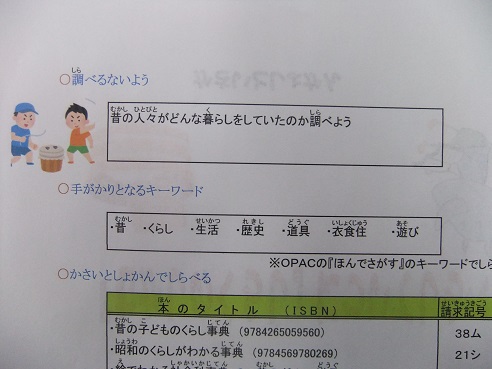 ○調べるないよう
昔の人々がどんな暮らしをしていたのか調べよう
○手がかりとなるキーワード
・昔 ・くらし ・生活 ・歴史 ・道具 ・衣食住 ・遊び
※OPACの『ほんでさがす』のキーワードでしら
○かさいとしょかんでしらべる
本のタイトル (ISBN) 請求記号
・昔の子どものくらし事典 (9784265059560) 38ム
・昭和のくらしがわかる事典 (9784569780269) 21シ